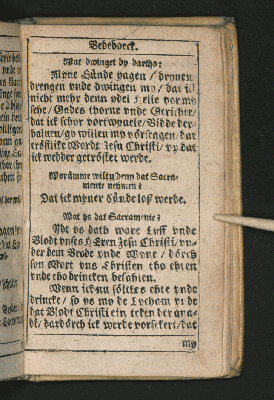 Bedeboeck.
Wat dwinget dy dartho?
Myne Sünde yagen / dryuen
drengen vnde dwingen my / dat ick
nicht mehr denn vdel Helle vor my
sehe / Gades thorne vnde Gerichte /
dat ick schor vortwyuele / Bidde der-
haluen / gy willen my vörseggen / dat
tröstlike Wordt Jesu Christi / vp dat
ick wedder getröstet werde.
Worümme wiltu denn dat Sacra-
mente nehmen?
Dat ick myner Sünde loß werde.
Wat ys dat Sacramente?
Idt ys dath ware Lyff vnde
Blodt vnses HEren Jesu Christi / vn-
der dem Brode vnde Wyne / dörch
syn Wort vns Christen tho ethen
vnde tho drincken befahlen.
Wenn ick nu söltkes ethe vnde
drincke / so ys my de Lycham vnde
dat Blodt Christi ein teken der gna-
de / dardörch ick werde vorsekert / dat
my